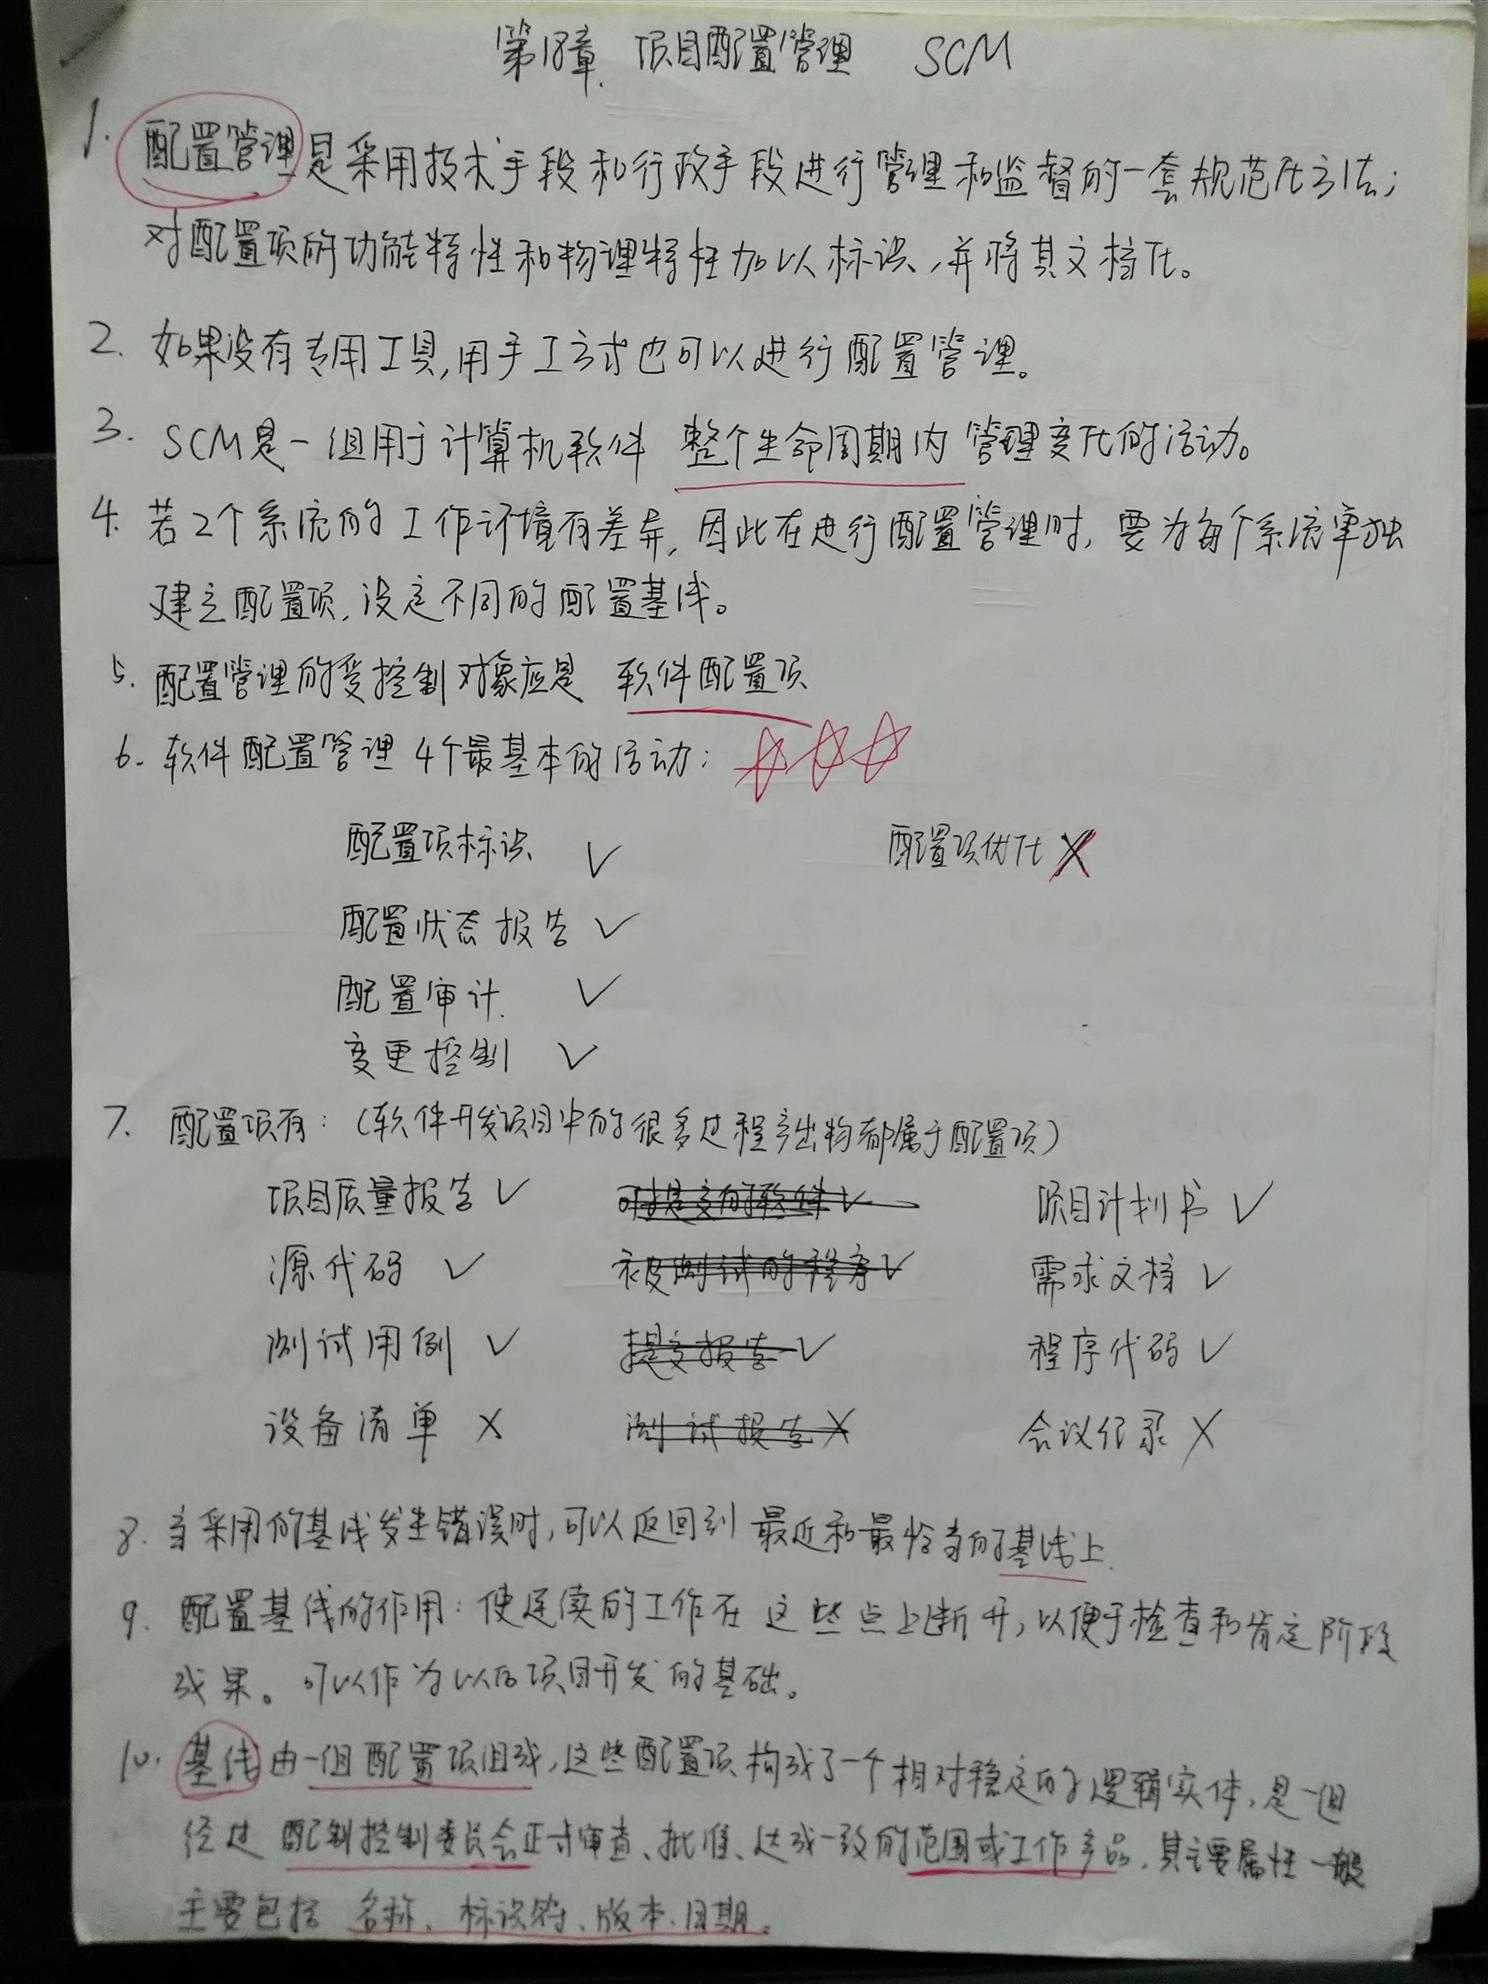 第18章. 项目配置管理 SCM
1. 配置管理是采用技术手段和行政手段进行管理和监督的一套规范化方法;
对配置项的功能特性和物理特性加以标识,并将其文档化。
2. 如果没有专用工具,用手工方式也可以进行配置管理。
3. SCM是一组用于计算机软件 整个生命周期内 管理变化的活动。
4. 若2个系统的工作环境有差异,因此在进行配置管理时,要为每个系统单独
建立配置项,设定不同的配置基线。
5. 配置管理的受控制对象应是 软件配置项
6. 软件配置管理 4个最基本的活动: ☆☆☆
配置项标识 ✓ 配置项优化 ✗
配置状态报告 ✓
配置审计. ✓
变更控制 ✓
7. 配置项有:(软件开发项目中的很多过程产出物都属于配置项)
项目质量报告 ✓ 可提交的软件 ✓ 项目计划书 ✓
源代码 ✓ 被测试的程序 ✓ 需求文档 ✓
测试用例 ✓ 提交报告 ✓ 程序代码 ✓
设备清单 ✗ 测试报告 ✗ 会议纪录 ✗
8. 当采用的基线发生错误时,可以返回到 最近和最恰当的基线上.
9. 配置基线的作用: 使连续的工作在 这些点上断开,以便于检查和肯定阶段
成果。可以作为以后项目开发的基础。
10. 基线由一组配置项组成,这些配置项构成了一个相对稳定的逻辑实体,是一组
经过 配制控制委员会正式审查、批准、达成一致的范围或工作产品,其主要属性一般
主要包括 名称、标识符、版本、日期。